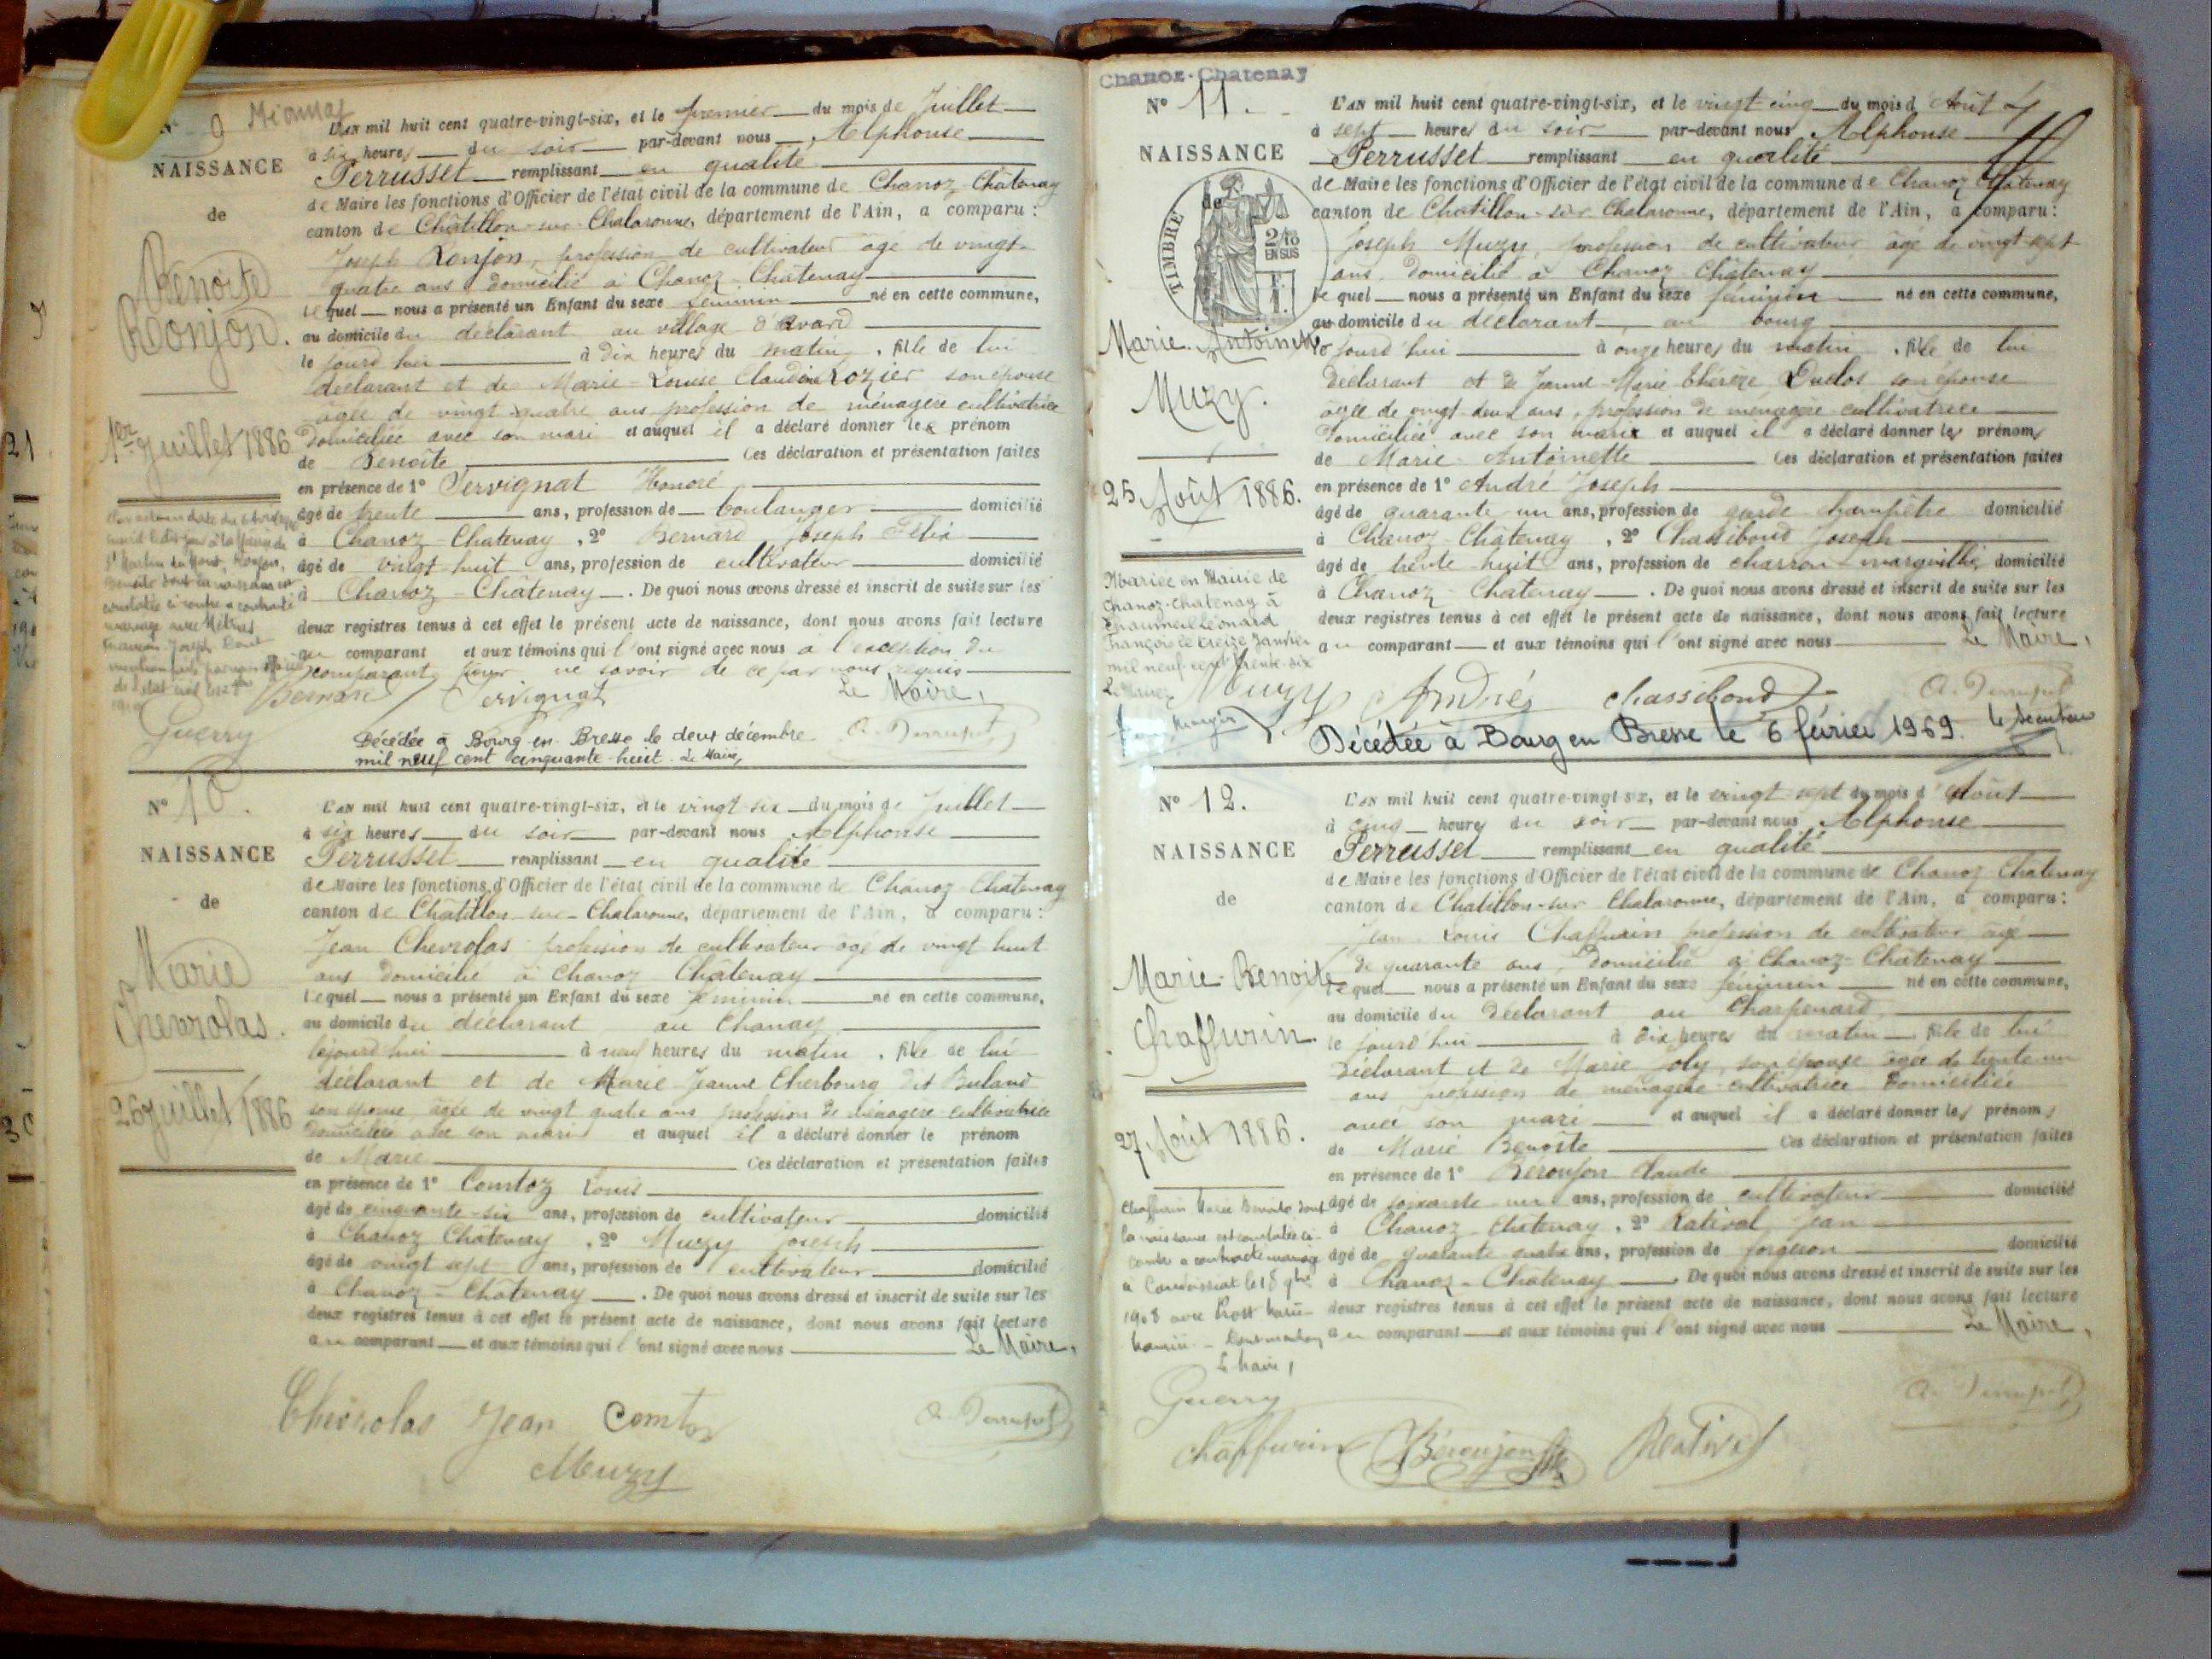 N° 9
NAISSANCE
de
Benoite
Ronjon.
1er Juillet 1886
L'an mil huit cent quatre-vingt-six, et le premier du mois de Juillet
à six heures du soir par-devant nous Alphonse
Perrusset remplissant en qualité
de Maire les fonctions d'Officier de l'état civil de la commune de Chanoz Châtenay
canton de Châtillon-sur-Chalaronne, département de l'Ain, a comparu :
Joseph Ronjon, profession de cultivateur âgé de vingt-
quatre ans domicilié à Chanoz-Châtenay
lequel nous a présenté un Enfant du sexe féminin né en cette commune,
au domicile du déclarant au village d'
le jourd'hui à dix heures du matin, fille de lui
déclarant et de Marie-Louise Claudine Rozier son épouse
âgée de vingt-quatre ans profession de ménagère cultivatrice
domiciliée avec son mari et auquel il a déclaré donner le prénom
de Benoite Ces déclaration et présentation faites
en présence de 1° Servignat Honoré
âgé de trente ans, profession de boulanger domicilié
à Chanoz-Châtenay, 2° Bernard Joseph Félix
âgé de vingt huit ans, profession de cultivateur domicilié
à Chanoz-Châtenay. De quoi nous avons dressé et inscrit de suite sur les
deux registres tenus à cet effet le présent acte de naissance, dont nous avons fait lecture
au comparant et aux témoins qui l'ont signé avec nous à l'exception du
comparant pour ne savoir de ce par nous requis
Le Maire,
Bernard Servignat
Guerry
Décédée à Bourg-en-Bresse le deux décembre
mil neuf cent cinquante-huit. Le Maire,
N° 10.
NAISSANCE
de
Marie
Chevrolas.
26 Juillet 1886
L'an mil huit cent quatre-vingt-six, et le vingt-six du mois de Juillet
à six heures du soir par-devant nous Alphonse
Perrusset remplissant en qualité
de Maire les fonctions d'Officier de l'état civil de la commune de Chanoz Châtenay
canton de Châtillon-sur-Chalaronne, département de l'Ain, a comparu :
Jean Chevrolas profession de cultivateur âgé de vingt huit
ans domicilié à Chanoz Châtenay
lequel nous a présenté un Enfant du sexe féminin né en cette commune,
au domicile du déclarant au Chanay
le jourd'hui à neuf heures du matin, fille de lui
déclarant et de Marie Jeanne Cherbourg dit
son épouse âgée de vingt quatre ans profession de ménagère cultivatrice
domiciliée avec son mari et auquel il a déclaré donner le prénom
de Marie Ces déclaration et présentation faites
en présence de 1° Comtoz Louis
âgé de cinquante-six ans, profession de cultivateur domicilié
à Chanoz Châtenay, 2° Muzy Joseph
âgé de vingt sept ans, profession de cultivateur domicilié
à Chanoz-Châtenay. De quoi nous avons dressé et inscrit de suite sur les
deux registres tenus à cet effet le présent acte de naissance, dont nous avons fait lecture
au comparant et aux témoins qui l'ont signé avec nous Le Maire,
Chevrolas Jean Comtoz
Muzy
Chanoz-Chatenay
N° 11.
NAISSANCE
de
TIMBRE
2/10
EN SUS
Marie-Antoinette
Muzy.
25 Août 1886.
Mariée en Mairie de
Chanoz-Chatenay à
Chaumeil Léonard
François le treize Janvier
mil neuf cent trente-six
L'an mil huit cent quatre-vingt-six, et le vingt-cinq du mois d'Août
à sept heures du soir par-devant nous Alphonse
Perrusset remplissant en qualité
de Maire les fonctions d'Officier de l'état civil de la commune de Chanoz Châtenay
canton de Châtillon-sur-Chalaronne, département de l'Ain, a comparu :
Joseph Muzy, profession de cultivateur âgé de vingt-sept
ans, domicilié à Chanoz Châtenay
lequel nous a présenté un Enfant du sexe féminin né en cette commune,
au domicile du déclarant, au bourg
le jourd'hui à onze heures du matin, fille de lui
déclarant et de Jeanne-Marie Thérèze Duclos son épouse
âgée de vingt-deux ans, profession de ménagère cultivatrice
domiciliée avec son mari et auquel il a déclaré donner les prénoms
de Marie-Antoinette Ces déclaration et présentation faites
en présence de 1° André Joseph
âgé de quarante un ans, profession de garde champêtre domicilié
à Chanoz-Châtenay, 2° Chassiboud Joseph
âgé de trente-huit ans, profession de charron domicilié
à Chanoz-Châtenay. De quoi nous avons dressé et inscrit de suite sur les
deux registres tenus à cet effet le présent acte de naissance, dont nous avons fait lecture
au comparant et aux témoins qui l'ont signé avec nous Le Maire,
Muzy André Chassiboud
Décédée à Bourg en Bresse le 6 février 1969.
N° 12.
NAISSANCE
de
Marie-Benoite
Chaffurin.
27 Août 1886.
Chaffurin Marie Benoite dont
la naissance est constatée ci-
contre a contracté mariage
à Condeissiat le
1908 avec
Le Maire,
L'an mil huit cent quatre-vingt-six, et le vingt-sept du mois d'Août
à cinq heures du soir par-devant nous Alphonse
Perrusset remplissant en qualité
de Maire les fonctions d'Officier de l'état civil de la commune de Chanoz Châtenay
canton de Châtillon-sur-Chalaronne, département de l'Ain, a comparu :
Jean-Louis Chaffurin profession de cultivateur âgé
de quarante ans, domicilié à Chanoz-Châtenay
lequel nous a présenté un Enfant du sexe féminin né en cette commune,
au domicile du déclarant au Charpenard
le jourd'hui à dix heures du matin, fille de lui
déclarant et de Marie Joly, son épouse âgée de trente un
ans profession de ménagère cultivatrice domiciliée
avec son mari et auquel il a déclaré donner les prénoms
de Marie Benoite Ces déclaration et présentation faites
en présence de 1° Beroujon Claude
âgé de soixante un ans, profession de cultivateur domicilié
à Chanoz Châtenay, 2° Rativol Jean
âgé de quarante quatre ans, profession de forgeron domicilié
à Chanoz-Châtenay. De quoi nous avons dressé et inscrit de suite sur les
deux registres tenus à cet effet le présent acte de naissance, dont nous avons fait lecture
au comparant et aux témoins qui l'ont signé avec nous Le Maire,
Guerry
Chaffurin Béroujon